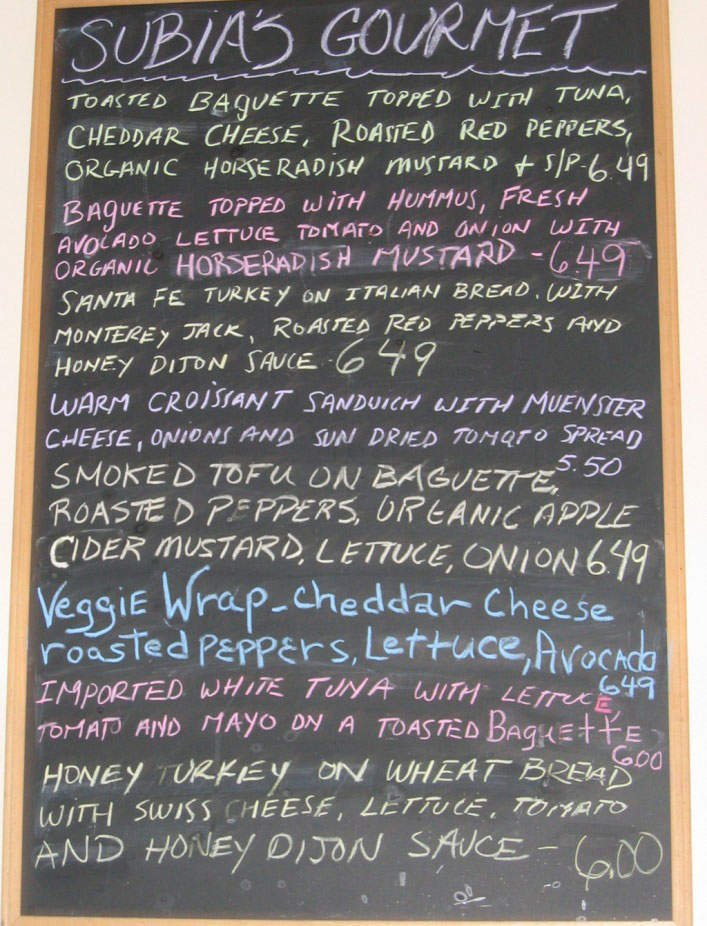 SUBIA'S GOURMET
TOASTED BAGUETTE TOPPED WITH TUNA,
CHEDDAR CHEESE, ROASTED RED PEPPERS,
ORGANIC HORSERADISH MUSTARD + S/P-6.49
BAGUETTE TOPPED WITH HUMMUS, FRESH
AVOCADO LETTUCE TOMATO AND ONION WITH
ORGANIC HORSERADISH MUSTARD - 6.49
SANTA FE TURKEY ON ITALIAN BREAD. WITH
MONTEREY JACK, ROASTED RED PEPPERS AND
HONEY DIJON SAUCE - 6 49
WARM CROISSANT SANDWICH WITH MUENSTER
CHEESE, ONIONS AND SUN DRIED TOMATO SPREAD
5.50
SMOKED TOFU ON BAGUETTE,
ROASTED PEPPERS, ORGANIC APPLE
CIDER MUSTARD, LETTUCE, ONION 6.49
VeggiE Wrap-cheddar Cheese
roasted PEPPERS, Lettuce, Avocado
649
IMPORTED WHITE TUNA WITH LETTUCE,
TOMATO AND MAYO ON A TOASTED BAguEttE
6.00
HONEY TURKEY ON WHEAT BREAD
WITH SWISS CHEESE, LETTUCE, TOMATO
AND HONEY DIJON SAUCE - 6.00